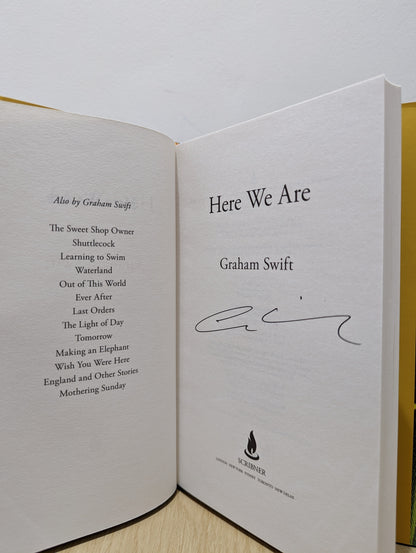 Also by Graham Swift
The Sweet Shop Owner
Shuttlecock
Learning to Swim
Waterland
Out of This World
Ever After
Last Orders
The Light of Day
Tomorrow
Making an Elephant
Wish You Were Here
England and Other Stories
Mothering Sunday
Here We Are
Graham Swift
SCRIBNER
LONDON NEW YORK SYDNEY TORONTO NEW DELHI